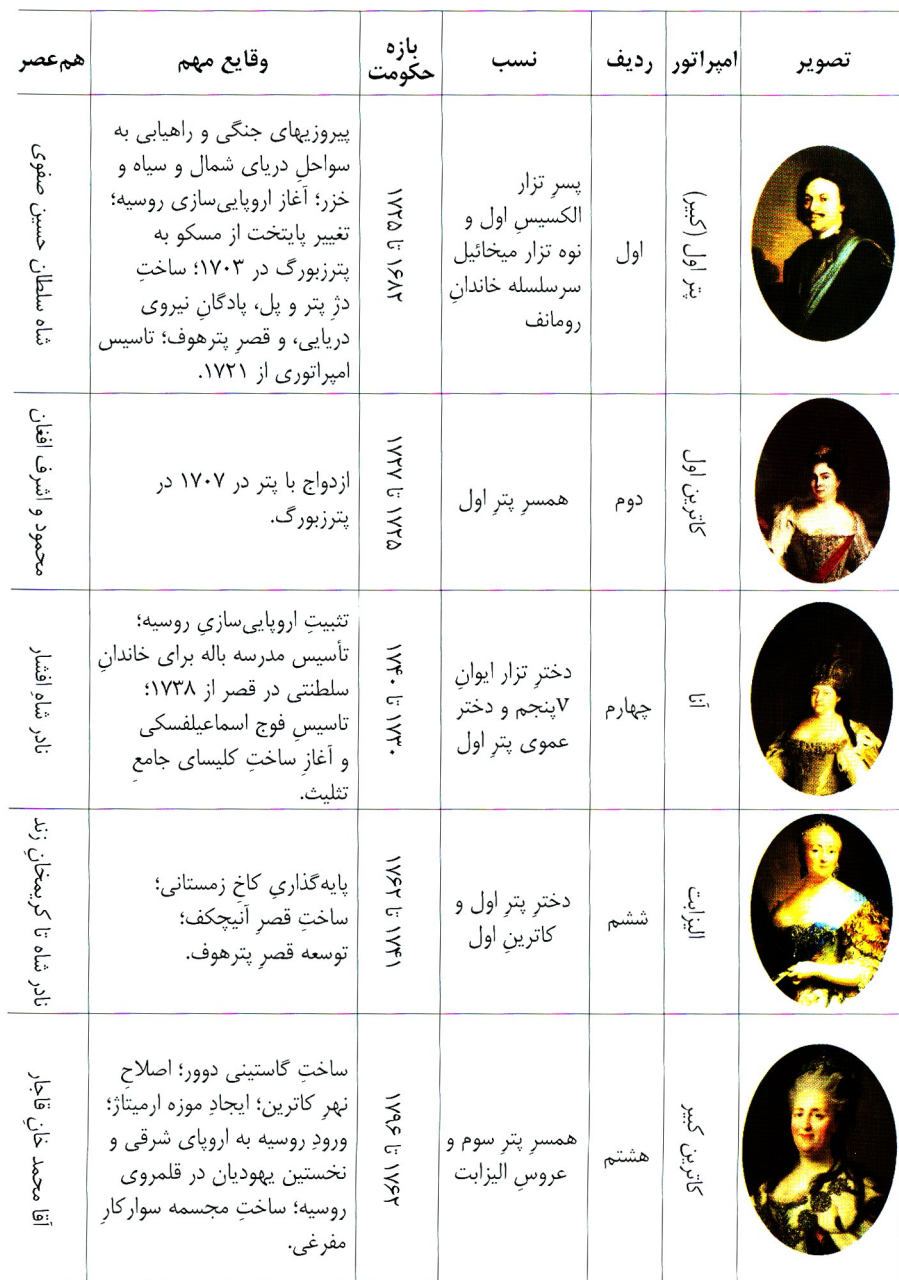 تصویر
امپراتور
ردیف
نسب
بازه
حکومت
وقایع مهم
هم‌عصر
پتر اول (کبیر)
اول
پسرِ تزار
الکسیسِ اول و
نوه تزار میخائیل
سرسلسله خاندانِ
رومانف
۱۶۸۲ تا ۱۷۲۵
پیروزیهای جنگی و راهیابی به
سواحلِ دریای شمال و سیاه و
خزر؛ آغاز اروپایی‌سازی روسیه؛
تغییر پایتخت از مسکو به
پترزبورگ در ۱۷۰۳؛ ساختِ
دژِ پتر و پل، پادگانِ نیروی
دریایی، و قصرِ پترهوف؛ تاسیس
امپراتوری از ۱۷۲۱.
شاه سلطان حسین صفوی
کاترین اول
دوم
همسرِ پترِ اول
۱۷۲۵ تا ۱۷۲۷
ازدواج با پتر در ۱۷۰۷ در
پترزبورگ.
محمود و اشرف افغان
آنا
چهارم
دخترِ تزار ایوانِ
vپنجم و دختر
عموی پترِ اول
۱۷۳۰ تا ۱۷۴۰
تثبیتِ اروپایی‌سازیِ روسیه؛
تأسیس مدرسه باله برای خاندانِ
سلطنتی در قصر از ۱۷۳۸؛
تاسیسِ فوج اسماعیلفسکی
و آغازِ ساختِ کلیسای جامعِ
تثلیث.
نادر شاهِ افشار
الیزابت
ششم
دخترِ پترِ اول و
کاترینِ اول
۱۷۴۱ تا ۱۷۶۲
پایه‌گذاریِ کاخِ زمستانی؛
ساختِ قصرِ آنیچکف؛
توسعه قصرِ پترهوف.
نادر شاه تا کریمخانِ زند
کاترین کبیر
هشتم
همسرِ پترِ سوم و
عروسِ الیزابت
۱۷۶۲ تا ۱۷۹۶
ساختِ گاستینی دوور؛ اصلاحِ
نهرِ کاترین؛ ایجادِ موزه ارمیتاژ؛
ورودِ روسیه به اروپای شرقی و
نخستین یهودیان در قلمروی
روسیه؛ ساختِ مجسمه سوارکارِ
مفرغی.
آقا محمد خانِ قاجار